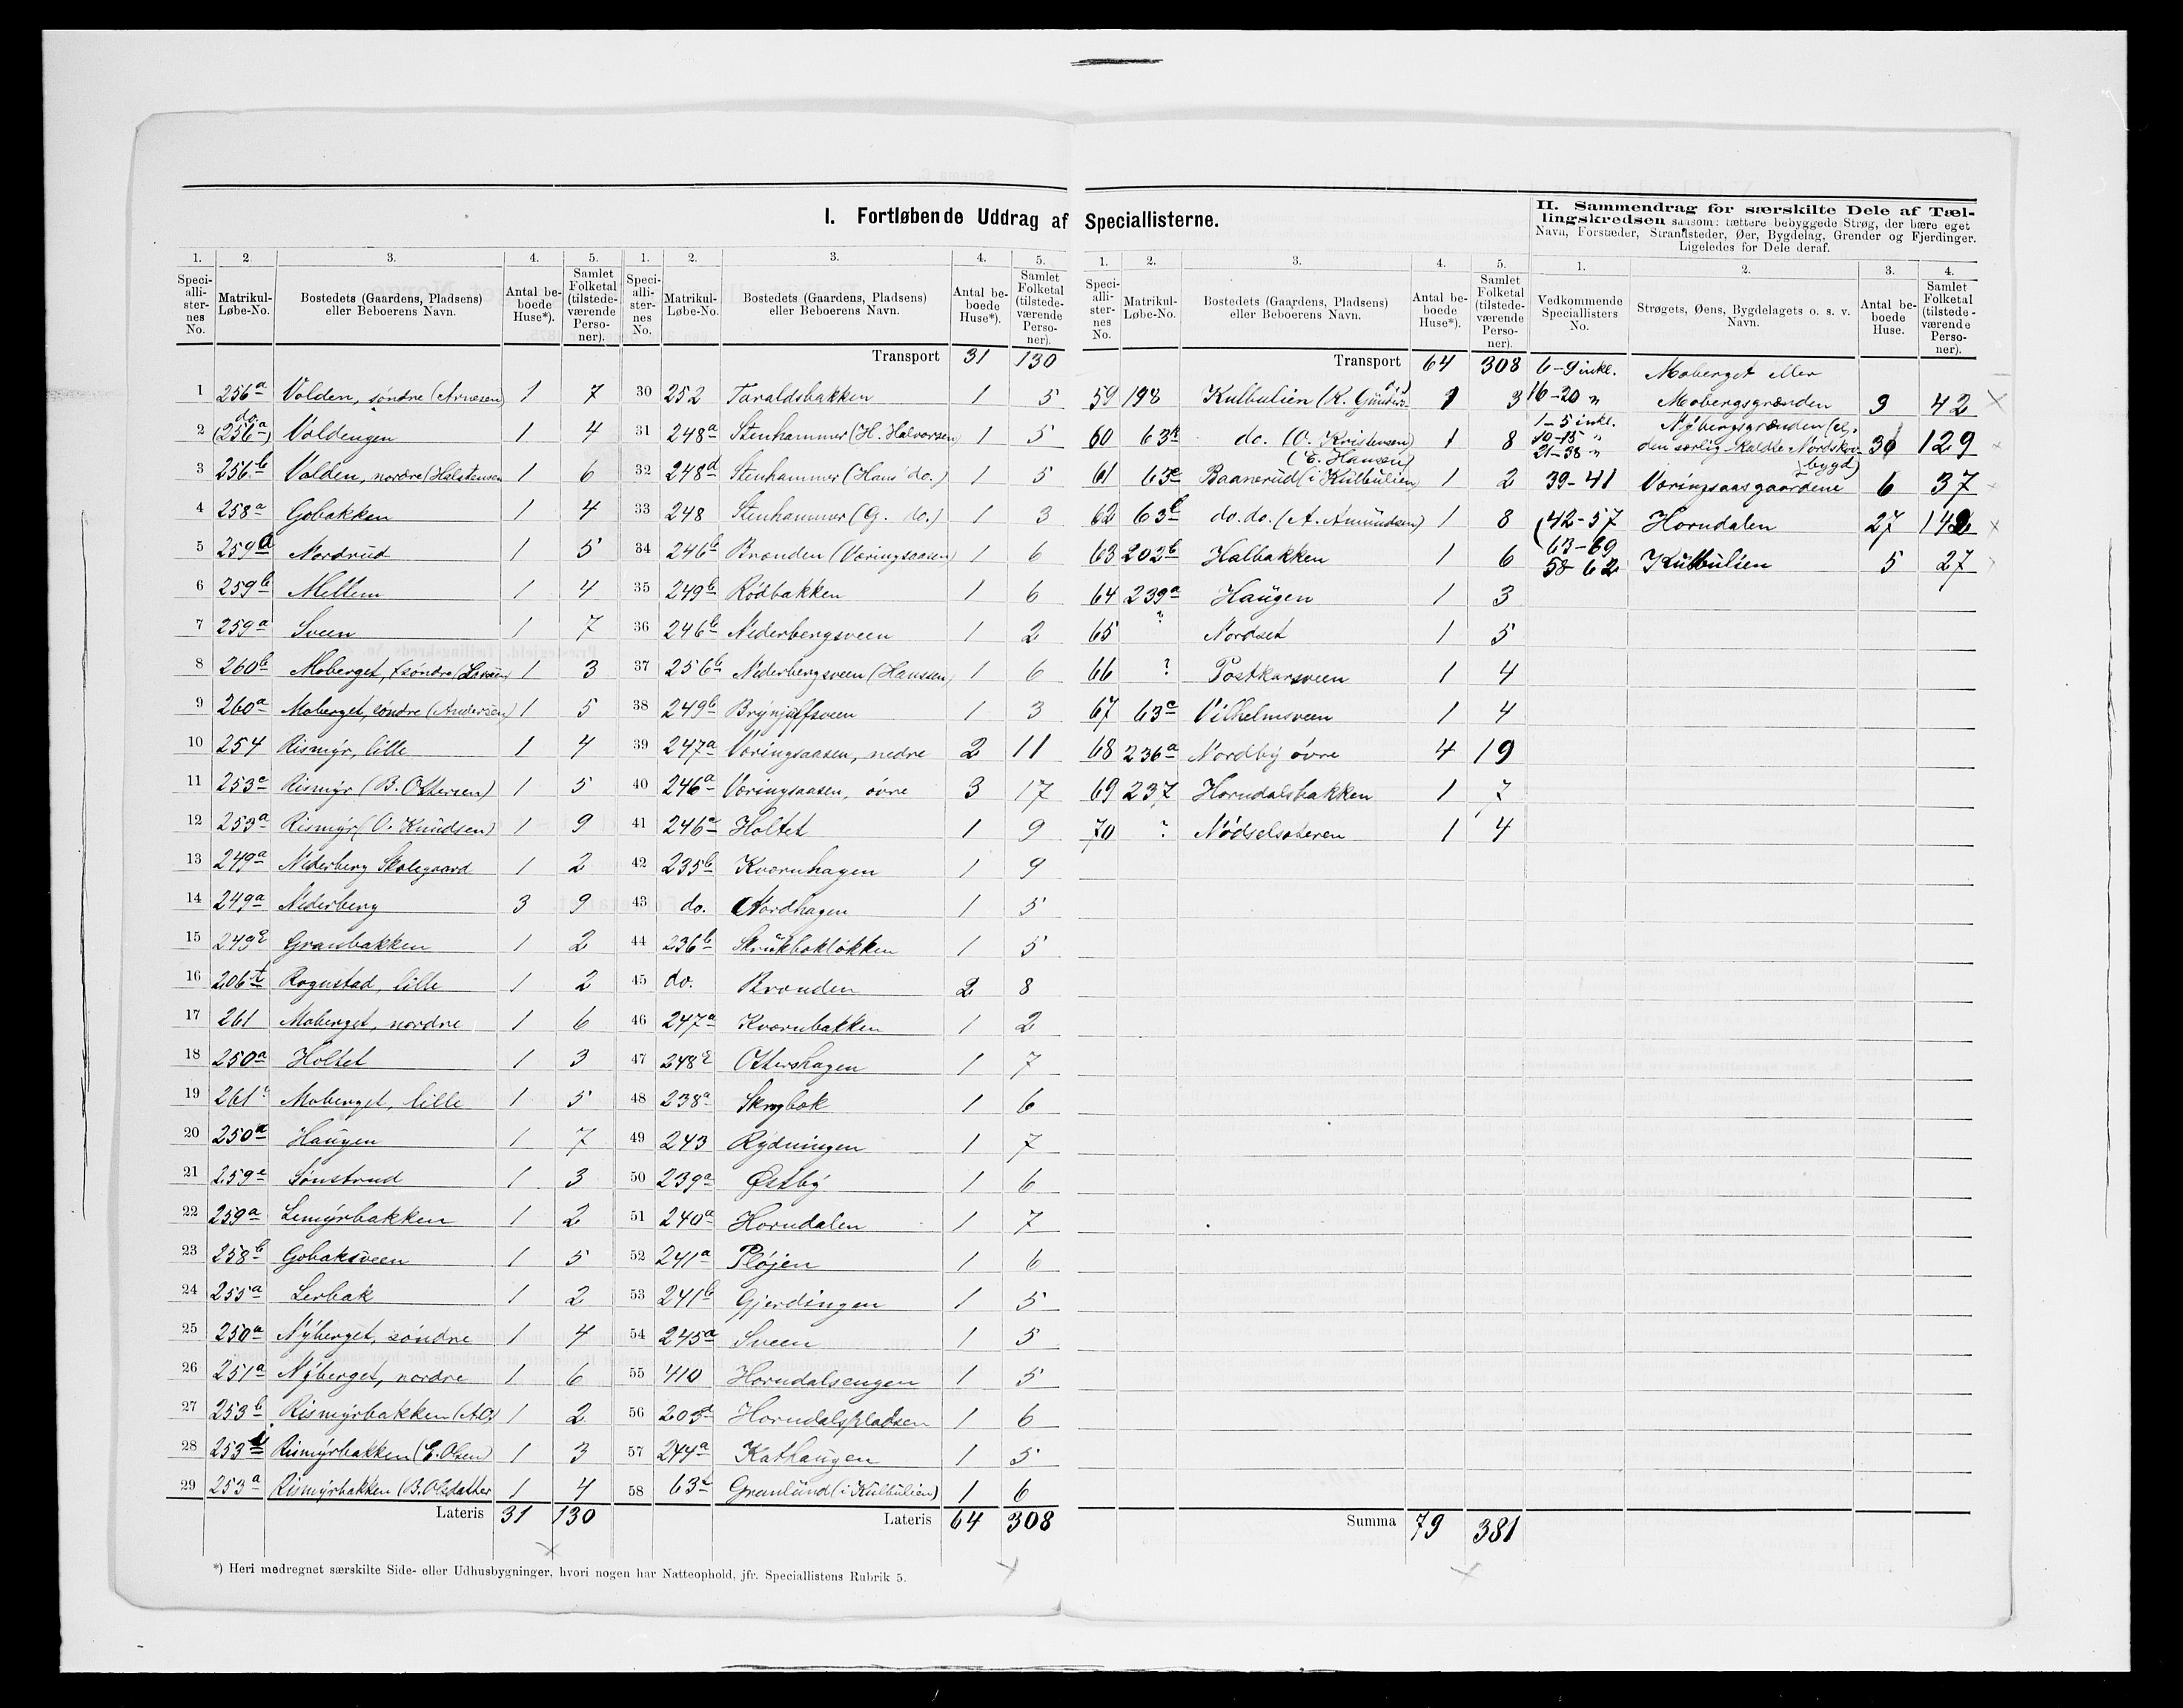 I. Fortløbende Uddrag af Speciallisterne.
II. Sammendrag for særskilte Dele af Tællingskredsen saasom: tættere bebyggede Strøg, der bære eget
Navn, Forstæder, Strandsteder, Øer, Bygdelag, Grender og Fjerdinger.
Ligeledes for Dele deraf.
1. 2. 3. 4. 5.
Speciallisternes No. Matrikul-Løbe-No. Bostedets (Gaardens, Pladsens) eller Beboerens Navn. Antal beboede Huse*). Samlet Folketal (tilstedeværende Personer).
1 256a Volden, søndre (Arnesen) 1 7
2 do. (256a) Voldengen 1 4
3 256b Volden, nordre (Halstensen 1 6
4 258a Gobakken 1 4
5 259d Nordrud 1 5
6 259b Mellem 1 4
7 259a Sveen 1 7
8 260b Moberget, søndre 1 3
9 260a Moberget, söndre (Andersen) 1 5
10 254 Rismýr, lille 1 4
11 253c Rismýr (B. Ottersen) 1 5
12 253a Rismýr (O. Knudsen) 1 9
13 249a Niderberg Skolegaard 1 2
14 249a Niderberg 3 9
15 249 Gransbakken 1 2
16 206 Rognstad, lille 1 2
17 261 Moberget, nordre 1 6
18 250a Holtet 1 3
19 261 Moberget, lille 1 5
20 250a Haugen 1 7
21 259e Sönstrud 1 3
22 259a Lemýrbakken 1 2
23 258b Gobaksveen 1 5
24 255a Lerbak 1 2
25 250a Nýberget, söndre 1 4
26 251a Nýberget, nordre 1 6
27 253b Rismýrbakken 1 2
28 253 Rismýrbakken (E. Olsen) 1 3
29 253a Rismýrbakken (B. Olsdatter 1 4
Lateris 31 130
1. 2. 3. 4. 5.
Speciallisternes No. Matrikul-Løbe-No. Bostedets (Gaardens, Pladsens) eller Beboerens Navn. Antal beboede Huse*). Samlet Folketal (tilstedeværende Personer).
Transport 31 130
30 252 Taraldsbakken 1 5
31 248a Stenhammer (H. Halvorsen) 1 5
32 248d Stenhammer (Hans do.) 1 5
33 248 Stenhammer (G. do.) 1 3
34 246b Brænden (Væringsaasen) 1 6
35 249b Rödbakken 1 6
36 246b Niderbergsveen 1 2
37 256b Niderbergsveen (Hanssen) 1 6
38 249b Brýnjulfsveen 1 3
39 247a Væringsaasen, nedre 2 11
40 246a Væringsaasen, övre 3 17
41 246 Holtet 1 9
42 235b Kværnhagen 1 9
43 do. Nordhagen 1 5
44 236b Skrukbaklökken 1 5
45 do. Brænden 2 8
46 247a Kværnbakken 1 2
47 248 Ottershagen 1 7
48 238a Skrogbak 1 6
49 243 Rýdningen 1 7
50 239a Østbý 1 6
51 240a Horndalen 1 7
52 241a Pløjen 1 6
53 241b Gjerdingen 1 5
54 245a Sveen 1 5
55 410 Horndalsengen 1 5
56 203d Horndalspladsen 1 6
57 244a Kathaugen 1 5
58 63 Granlund (i Kulbulien) 1 6
Lateris 64 308
*) Heri medregnet særskilte Side- eller Udhusbygninger, hvori nogen har Natteophold, jfr. Speciallistens Rubrik 5.
1. 2. 3. 4. 5.
Speciallisternes No. Matrikul-Løbe-No. Bostedets (Gaardens, Pladsens) eller Beboerens Navn. Antal beboede Huse*). Samlet Folketal (tilstedeværende Personer).
Transport 64 308
59 198 Kulbulien (K. 1 3
60 63 do. (O. Kristensen) 1 8
61 63e Baanerud (i Kulbulien) (E. Hansen) 1 2
62 63 do. do. (A. Amundsen) 1 8
63 202b Halbakken 1 6
64 239a Haugen 1 3
65 ? Nordset 1 5
66 ? Postkarsveen 1 4
67 63c Vilhelmsveen 1 4
68 236a Nordbý övre 4 19
69 237 Horndalsbakken 1 7
70 ? Nödselsæteren 1 4
Summa 79 381
1. 2. 3. 4.
Vedkommende Speciallisters No. Strøgets, Øens, Bygdelagets o. s. v. Navn. Antal beboede Huse. Samlet Folketal (tilstedeværende Personer).
6-9 inkl. Moberget eller
16-20 " Mobergsgrænden 9 42
1-5 inkl. Nýbergsgrænden (el.
10-15 "
21-38 " den særlig kaldte Nordskovbygd) 36 129
39-41 Væringsaasgaardene 6 37
(42-57 Horndalen 27 142
63-69
58-62 Kulbulien 5 27